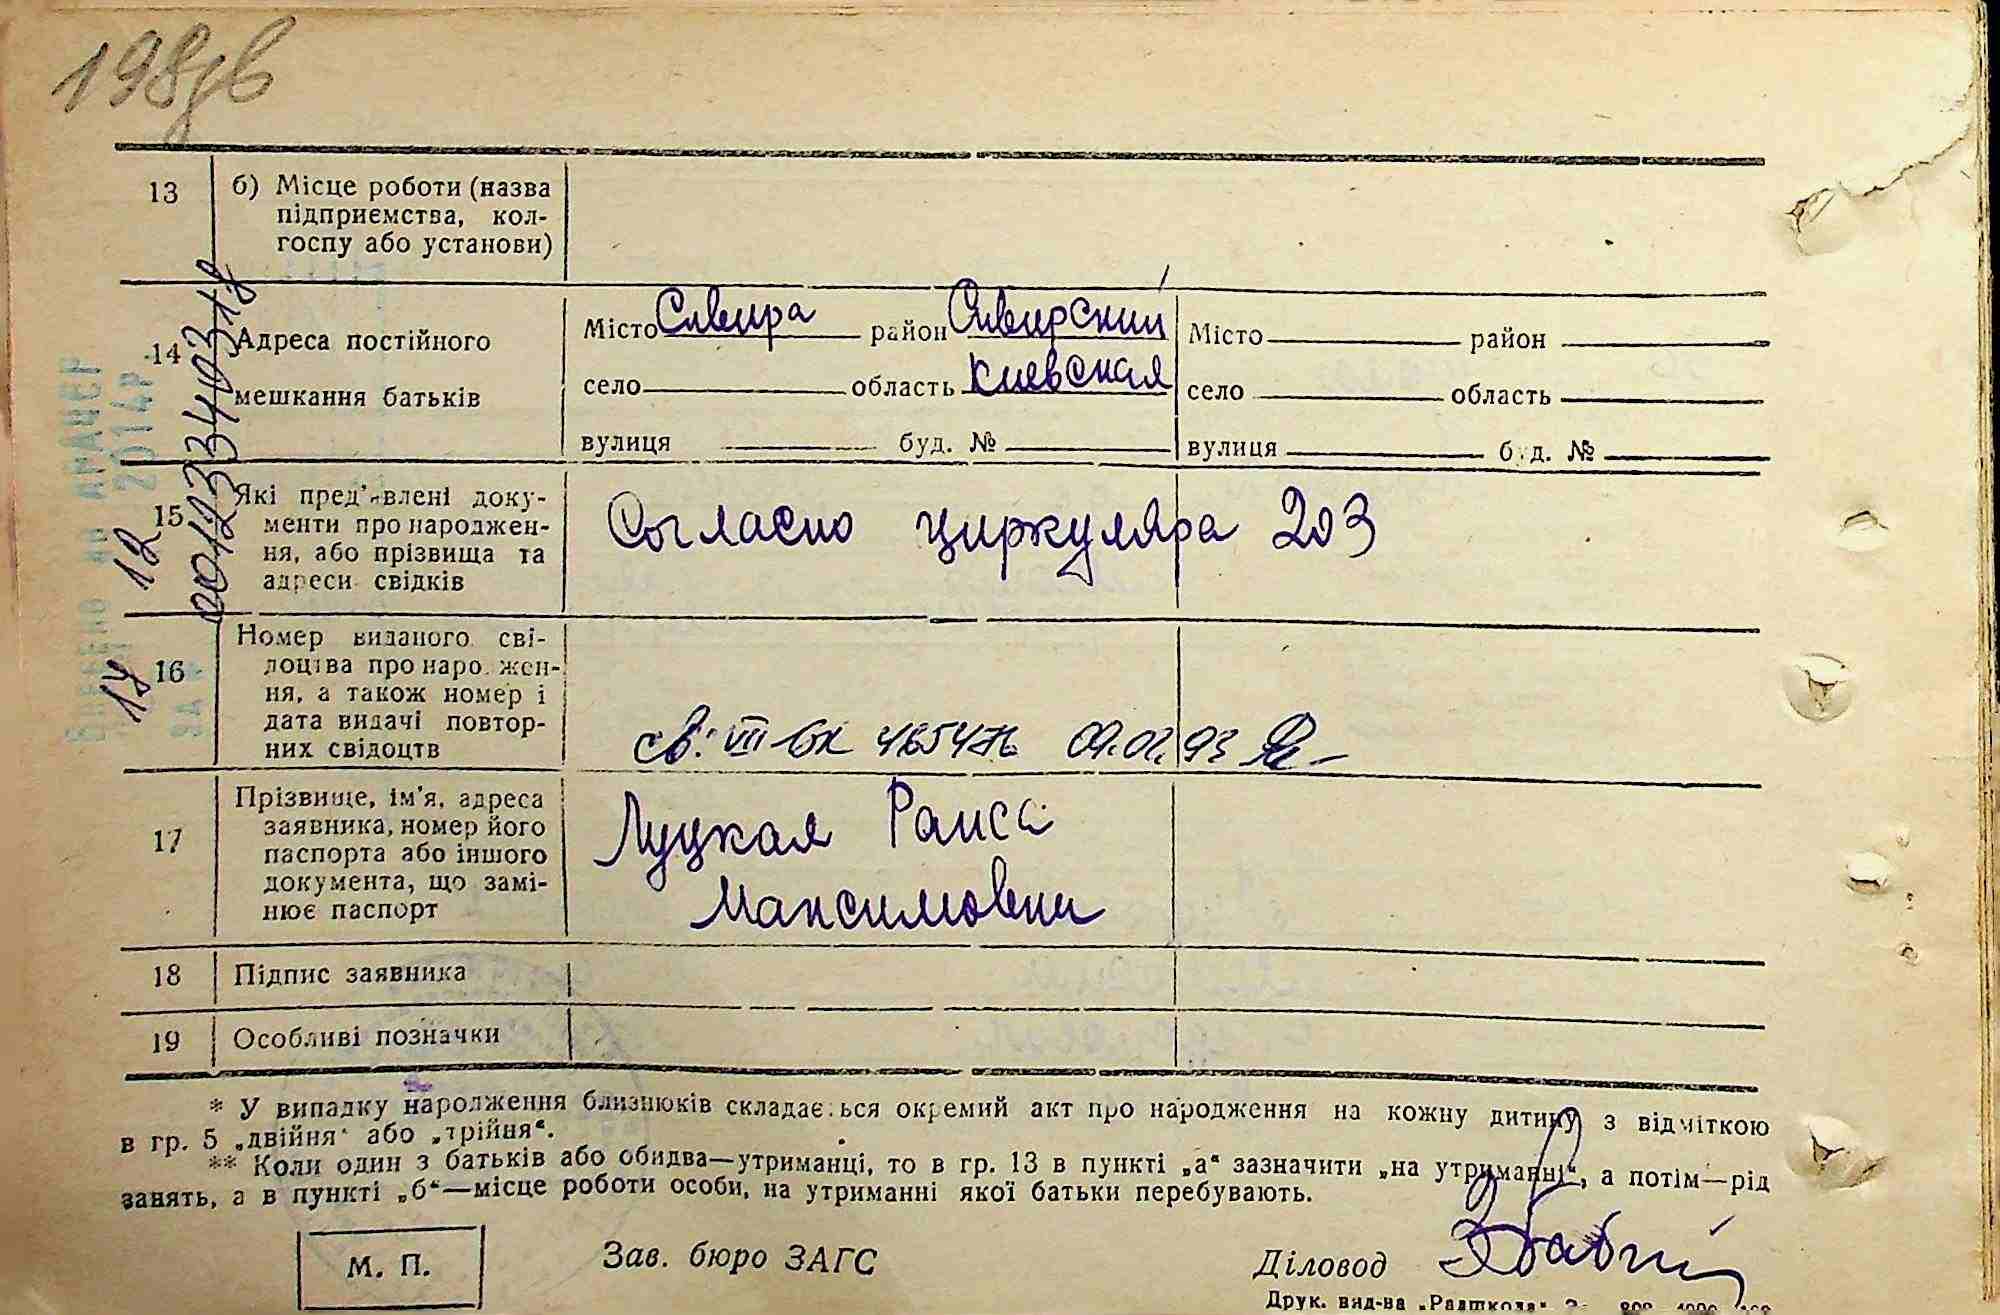 198зв
13 б) Місце роботи (назва
підприємства, кол-
госпу або установи)
14 Адреса постійного
мешкання батьків
Місто Сквира район Сквирский
село область Киевская
вулиця буд. №
Місто район
село область
вулиця буд. №
15 Які пред'явлені доку-
менти про народжен-
ня, або прізвища та
адреси свідків
Согласно циркуляра 203
16 Номер виданого сві-
доцтва про народжен-
ня, а також номер і
дата видачі повтор-
них свідоцтв
св. VII-БК 465476 09.02.93
17 Прізвище, ім'я, адреса
заявника, номер його
паспорта або іншого
документа, що замі-
нює паспорт
Луцкая Раиса
Максимовна
18 Підпис заявника
19 Особливі позначки
00123340318
17 12
2014р
* У випадку народження близнюків складається окремий акт про народження на кожну дитину з відміткою
в гр. 5 „двійня“ або „трійня“.
** Коли один з батьків або обидва—утриманці, то в гр. 13 в пункті „а“ зазначити „на утриманні“, а потім—рід
занять, а в пункті „б“—місце роботи особи, на утриманні якої батьки перебувають.
М. П.
Зав. бюро ЗАГС
Діловод
Друк. вид-ва „Радшкола“